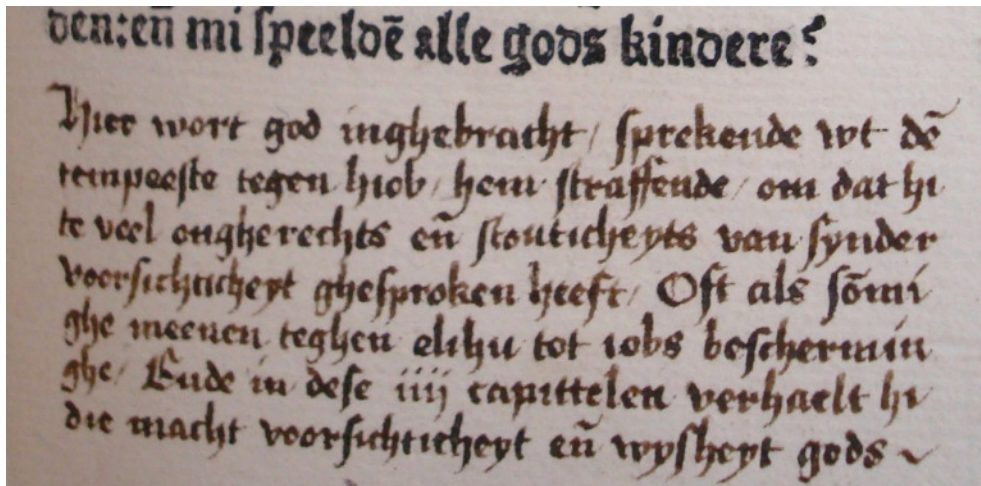 den: en̄ mi speeldē alle gods kindere?
Hier wort god inghebracht / sprekende wt dē
tempeeste tegen hiob / hem straffende / om dat hi
te veel ongherechts en̄ stouticheyts van synder
voorsichticheyt ghesproken heeft / Oft als sōmi
ghe meenen teghen elihu tot iobs beschermin
ghe / Ende in dese iiij capittelen verhaelt hi
die macht voorsichticheyt en̄ wysheyt gods ~